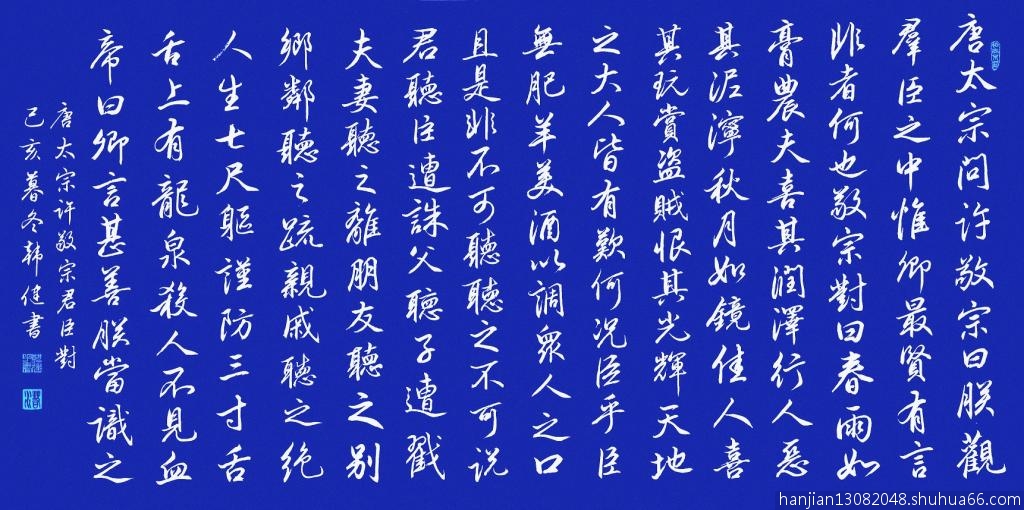 唐太宗问许敬宗曰朕觀
羣臣之中惟卿最賢有言
非者何也敬宗對曰春雨如
膏農夫喜其润澤行人惡
其泥濘秋月如鏡佳人喜
其玩賞盗賊恨其光輝天地
之大人皆有歎何况臣乎臣
無肥羊美酒以調眾人之口
且是非不可聽聽之不可说
君聽臣遭誅父聽子遭戮
夫妻聽之離朋友聽之别
鄉鄰聽之疏親戚聽之绝
人生七尺軀謹防三寸舌
舌上有龍泉殺人不見血
帝曰卿言甚善朕當識之
唐太宗许敬宗君臣對
己亥暮冬韩健書
hanjian13082048.shuhua66.com